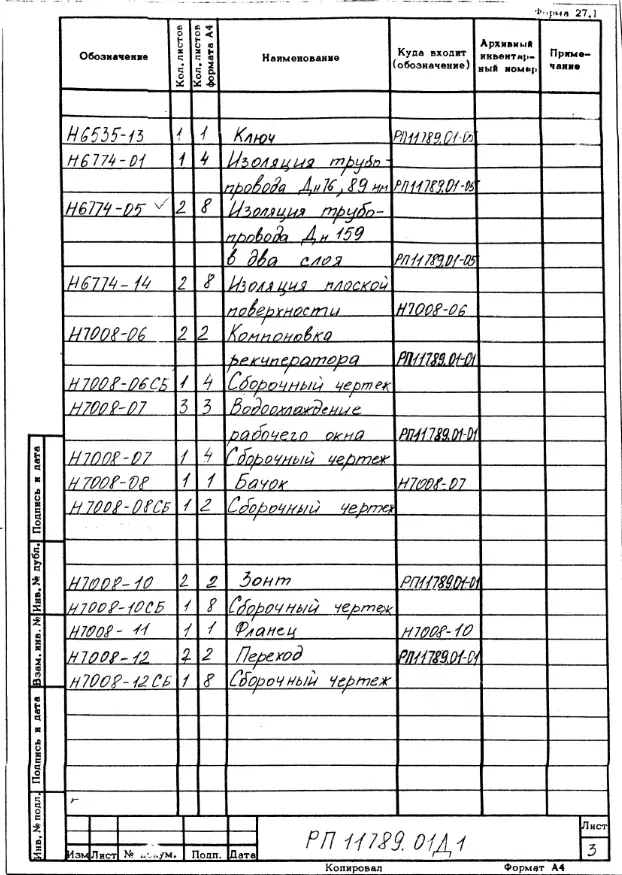 Форма 27.1
Обозначение Кол. листов Кол. листов формата А4 Наименование Куда входит (обозначение) Архивный инвентарный номер Примечание
Н6535-13 1 1 Ключ РП11789.01-05
Н6774-01 1 4 Изоляция трубо-
провода Дн76, 89 мм РП11789.01-05
Н6774-05 2 8 Изоляция трубо-
провода Дн 159
в два слоя РП11789.01-05
Н6774-14 2 8 Изоляция плоской
поверхности Н7008-06
Н7008-06 2 2 Компоновка
рекуператора РП11789.01-01
Н7008-06СБ 1 4 Сборочный чертеж
Н7008-07 3 3 Водоохлаждение
рабочего окна РП11789.01-01
Н7008-07 1 4 Сборочный чертеж
Н7008-08 1 1 Бачок Н7008-07
Н7008-08СБ 1 2 Сборочный чертеж
Н7008-10 2 2 Зонт РП11789.01-01
Н7008-10СБ 1 8 Сборочный чертеж
Н7008-11 1 1 Фланец Н7008-10
Н7008-12 2 2 Переход РП11789.01-01
Н7008-12СБ 1 8 Сборочный чертеж
Инв. № подл. Подпись и дата Взам. инв. № Инв. № дубл. Подпись и дата
РП 11789.01Д1
Лист
3
Изм Лист № докум. Подп. Дата
Копировал Формат А4